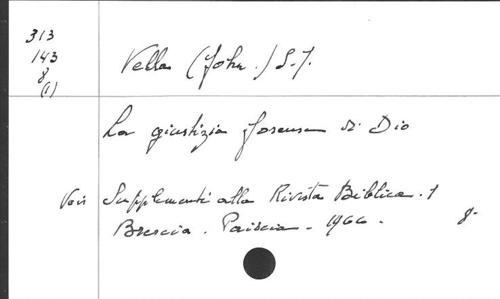 313
143
8
(1)
Vella (John.) S.J.
La giustizia forense di Dio
Voir Supplementi alla Rivista Biblica. 1
Brescia. Paideia - 1964 - 8.